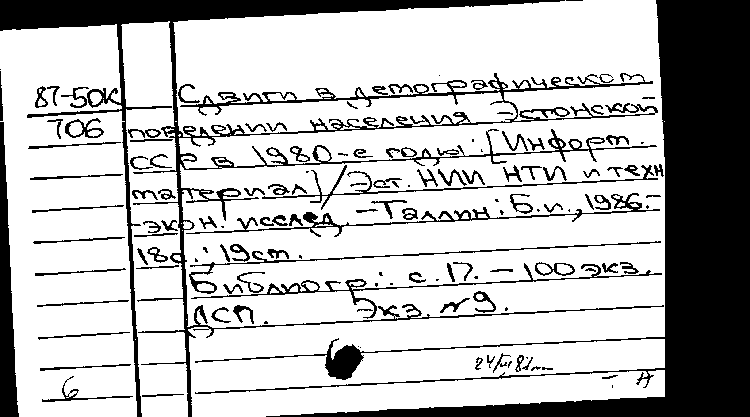 87-50К Сдвиги в демографическом
706 поведении населения Эстонской
ССР в 1980-е годы: [Информ.
материал] / Эст. НИИ НТИ и техн.
-экон. исслед. - Таллин: Б.и., 1986.-
18с.; 19см.
Библиогр.: с. 17. - 100 экз.
ДСП. Экз. №9.
6